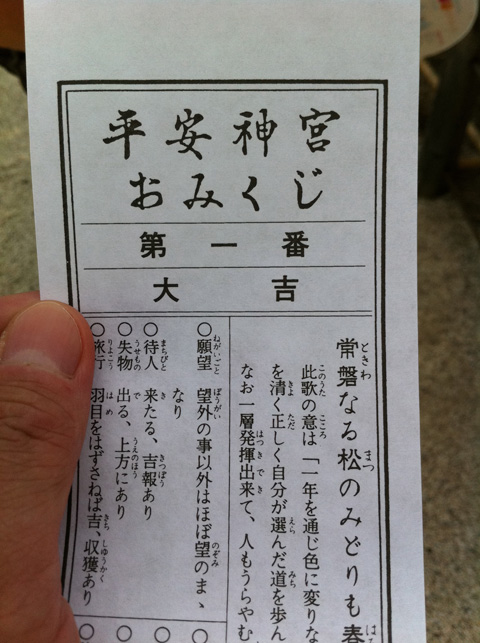 平安神宮
おみくじ
第一番
大吉
常磐なる松のみどりも春
此歌の意は「一年を通じ色に変りな
を清く正しく自分が選んだ道を歩ん
なお一層発揮出来て、人もうらやむ
○願望 望外の事以外はほぼ望のまゝ
なり
○待人 来たる、吉報あり
○失物 出る、上方にあり
○旅行 羽目をはずさねば吉、収獲あり